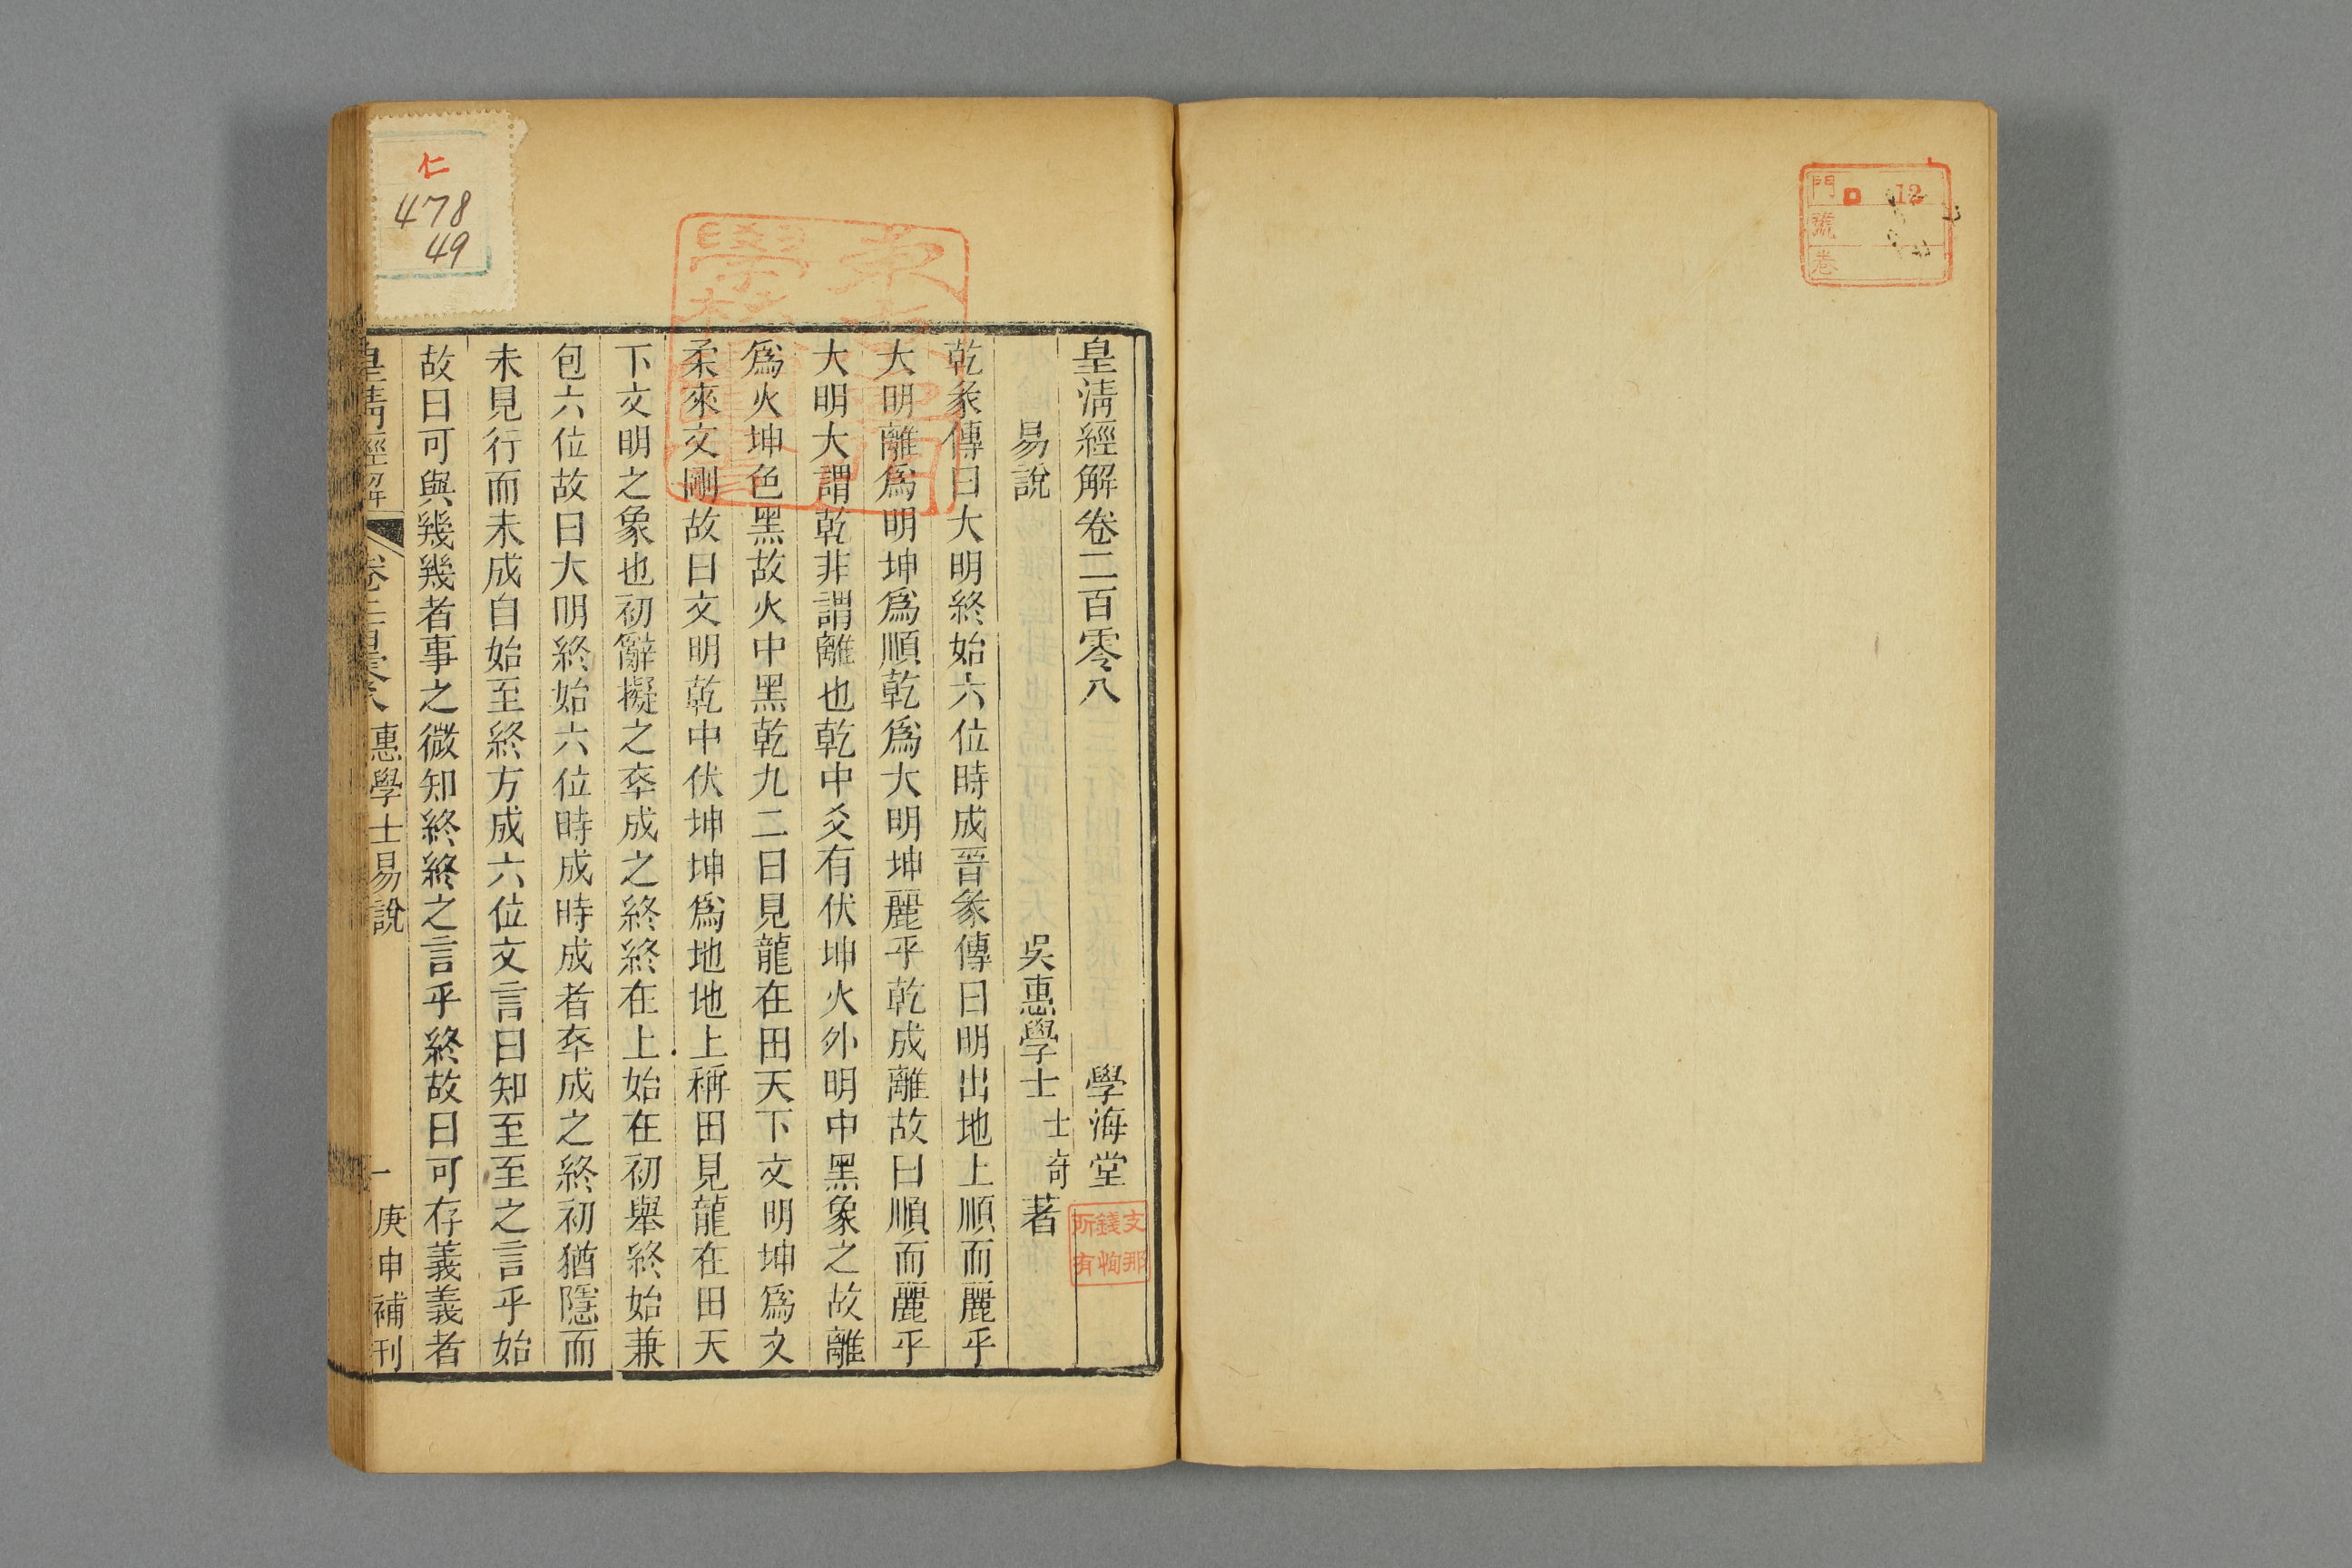 門
號
卷
D 12
皇清經解卷二百零八
學海堂
支那
錢恂
所有
易說
吳惠學士士奇著
乾彖傳曰大明終始六位時成晉彖傳曰明出地上順而麗乎
大明離爲明坤爲順乾爲大明坤麗乎乾成離故曰順而麗乎
大明大謂乾非謂離也乾中爻有伏坤火外明中黑象之故離
爲火坤色黑故火中黑乾九二曰見龍在田天下文明坤爲文
柔來文剛故曰文明乾中伏坤坤爲地地上稱田見龍在田天
下文明之象也初辭擬之卒成之終終在上始在初舉終始兼
包六位故曰大明終始六位時成時成者卒成之終初猶隱而
未見行而未成自始至終方成六位文言曰知至至之言乎始
故曰可與幾幾者事之微知終終之言乎終故曰可存義義者
皇清經解
卷二百零八
惠學士易說
一
庚申補刊
仁
478
49